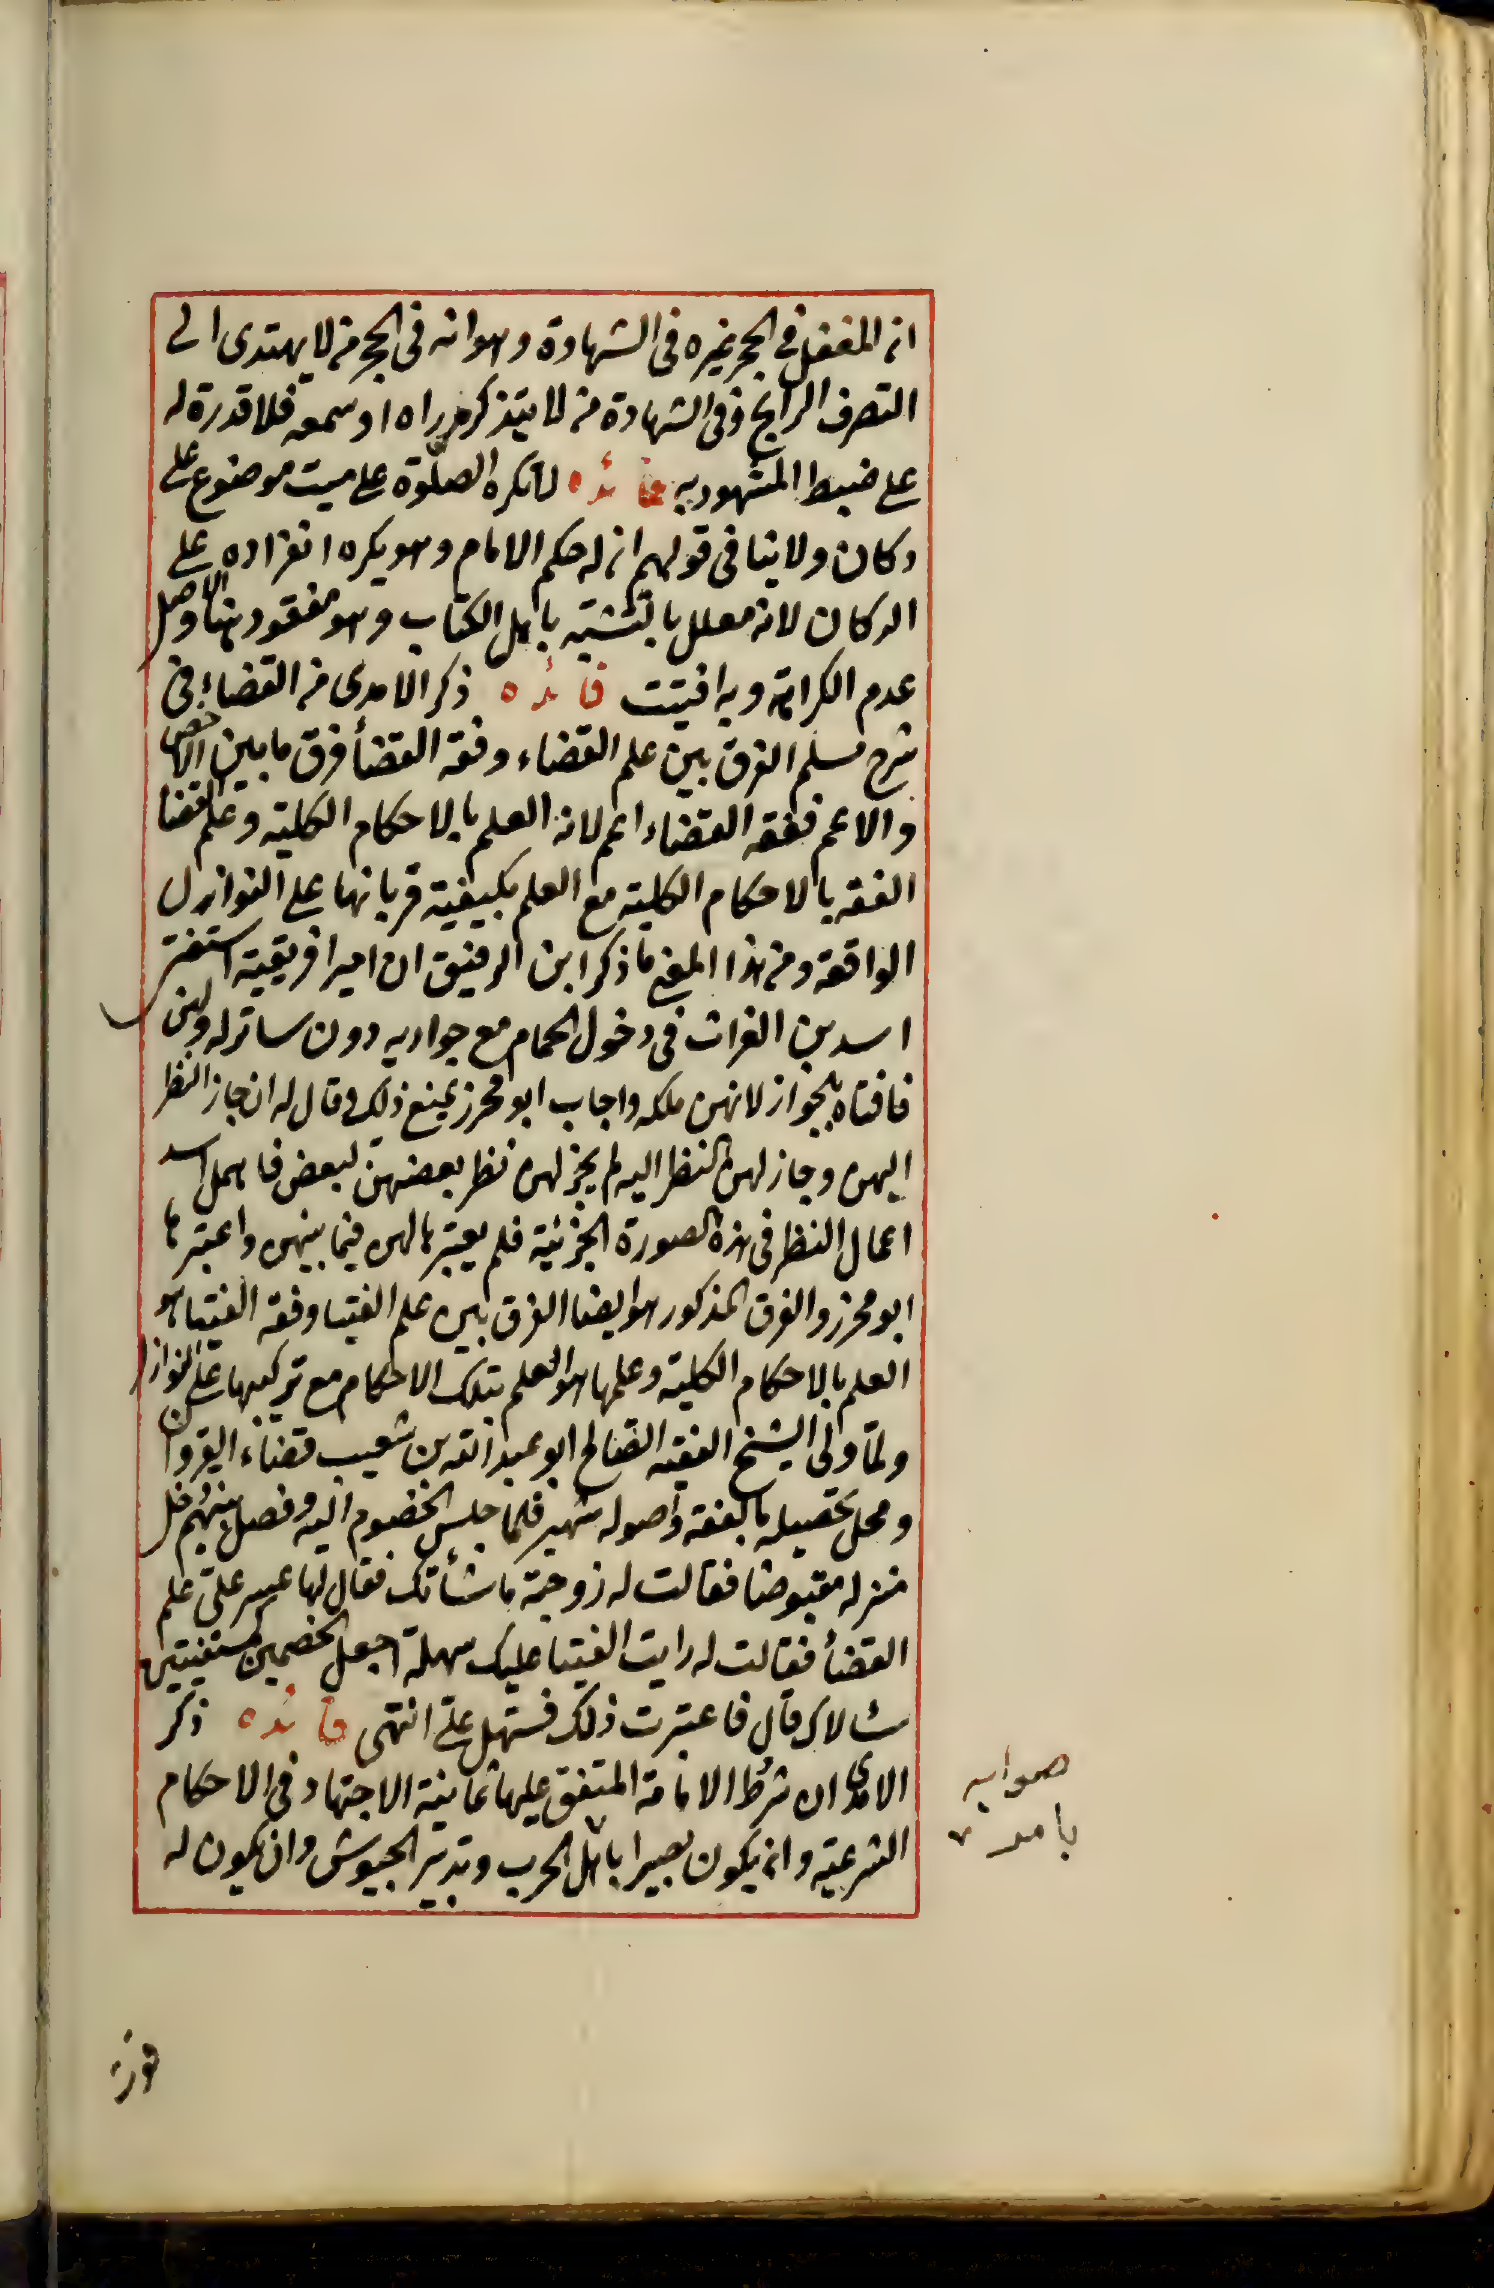 ان المغفل في الحجر غيره في الشهادة وهو انه في الحجر من لا يهتدى الى
التصرف الرابح وفي الشهادة من لا يتذكر ما راه او سمعه فلا قدرة له
على ضبط المشهود به فائده لا تكره الصلوة على ميت موضوع على
دكان ولا ينافى قولهم ان له حكم الامام وهو يكره انفراده على
الدكان لانه معلل بالتشبه باهل الكتاب وهو مفقود هنا والاصل
عدم الكراهة وبه افتيت فائده ذكر الامدى من القضاء في
شرح مسلم الفرق بين علم القضاء وفقه القضأ فرق ما بين الاخص
والاعم ففقه القضاء اعم لانه العلم بالاحكام الكلية وعلم القضا
الفقه بالاحكام الكلية مع العلم بكيفية قربانها على النوازل
الواقعة ومن هذا المعنى ما ذكر ابن الرفيق ان امير افريقية استفتى
اسد بن الفرات في دخول الحمام مع جواريه دون ساتر له ولهن
فافتاه بالجواز لانهن ملكه واجاب ابو محرز بمنع ذلك وقال له ان جاز النظر
اليهن وجاز لهن النظر اليه لم يجز لهن نظر بعضهن لبعض فاهمل اسد
اعمال النظر في هذه الصورة الجزئية فلم يعتبر مالهن فيما بينهن واعتبرها
ابو محرز والفرق المذكور هو ايضا الفرق بين علم الفتيا وفقه الفتيا هو
العلم بالاحكام الكلية وعلمها هو العلم بتلك الاحكام مع تركيبها على النوازل
ولمّا ولى الشيخ الفقيه الصالح ابو عبد الله بن شعيب قضاء القيروان
ومحل تحصيله بالفقه واصوله شهير فلما جلس الخصوم اليه وفصل بينهم دخل
منزله مقبوضا فقالت له زوجته ما شأنك فقال لها عسر علىّ علم
القضأ فقالت له رايت الفتيا عليك سهلة اجعل الخصمين كمستفتيين
سئالاك قال فاعتبرت ذلك فسهل علىّ انتهى فائده ذكر
الامدى ان شرط الامامة المتفق عليها ثمانية الاجتهاد في الاحكام
الشرعية وان يكون بصيرا باهل الحرب وتدبير الجيوش وان يكون له
صوابه
بامر
قوة